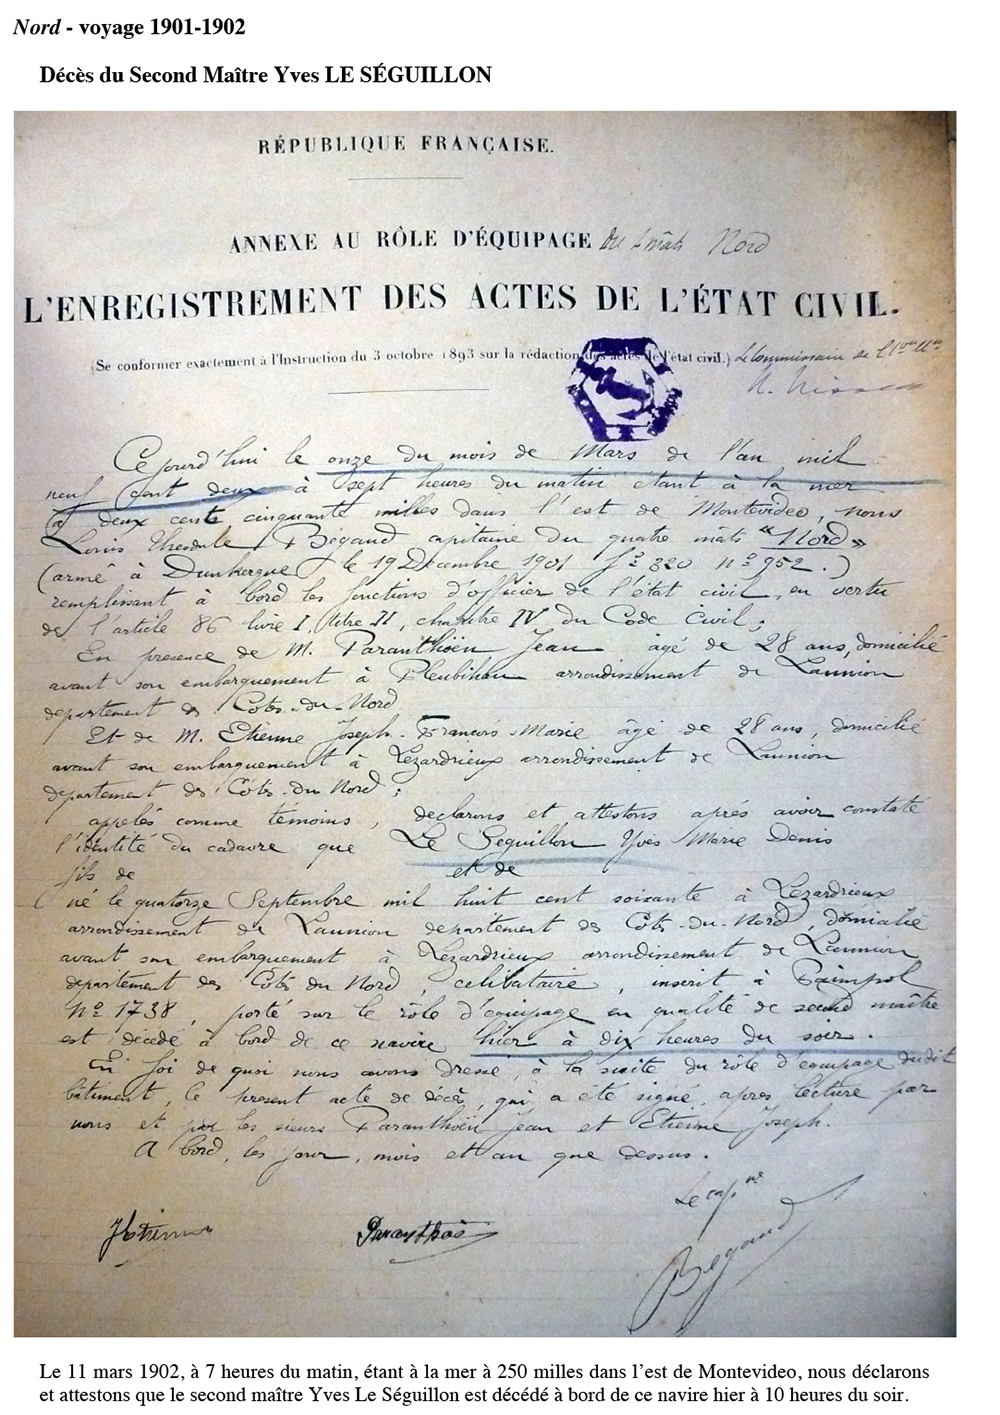 Nord - voyage 1901-1902
Décès du Second Maître Yves LE SÉGUILLON
RÉPUBLIQUE FRANÇAISE.
ANNEXE AU RÔLE D'ÉQUIPAGE du 4 mâts Nord
L'ENREGISTREMENT DES ACTES DE L'ÉTAT CIVIL.
(Se conformer exactement à l'Instruction du 3 octobre 1893 sur la rédaction des actes de l'état civil.) Le Commissaire de l'
Ce jourd'hui le onze du mois de Mars de l'an mil
neuf cent deux à sept heures du matin étant à la mer
à deux cents cinquante milles dans l'est de Montevideo, nous
Louis Théodule Bégaud capitaine du quatre mâts "Nord"
(armé à Dunkerque le 19 Décembre 1901 fo 320 no 952.)
remplissant à bord les fonctions d'officier de l'état civil, en vertu
de l'article 86 livre I, titre II, chapitre IV du Code Civil;
En présence de M. Paranthoën Jean âgé de 28 ans, domicilié
avant son embarquement à Pleubihan arrondissement de Lannion
département des Côtes-du-Nord
Et de M. Etienne Joseph-François-Marie âgé de 28 ans, domicilié
avant son embarquement à Lézardrieux arrondissement de Lannion
département des Côtes-du Nord;
appelés comme témoins, déclarons et attestons après avoir constaté
l'identité du cadavre que Le Séguillon Yves Marie Denis
fils de et de
né le quatorze Septembre mil huit cent soixante à Lézardrieux
arrondissement de Lannion département des Côtes-du-Nord, domicilié
avant son embarquement à Lézardrieux arrondissement de Lannion
département des Côtes du Nord, célibataire, inscrit à Paimpol
No 1738, porté sur le rôle d'équipage en qualité de second maître
est décédé à bord de ce navire hier à dix heures du soir.
En foi de quoi nous avons dressé, à la suite du rôle d'équipage dudit
bâtiment, le présent acte de décès, qui a été signé, après lecture par
nous et par les sieurs Paranthoën Jean et Etienne Joseph.
A bord, les jour, mois et an que dessus.
Le capne
JEtienne Paranthoën Bégaud
Le 11 mars 1902, à 7 heures du matin, étant à la mer à 250 milles dans l'est de Montevideo, nous déclarons
et attestons que le second maître Yves Le Séguillon est décédé à bord de ce navire hier à 10 heures du soir.